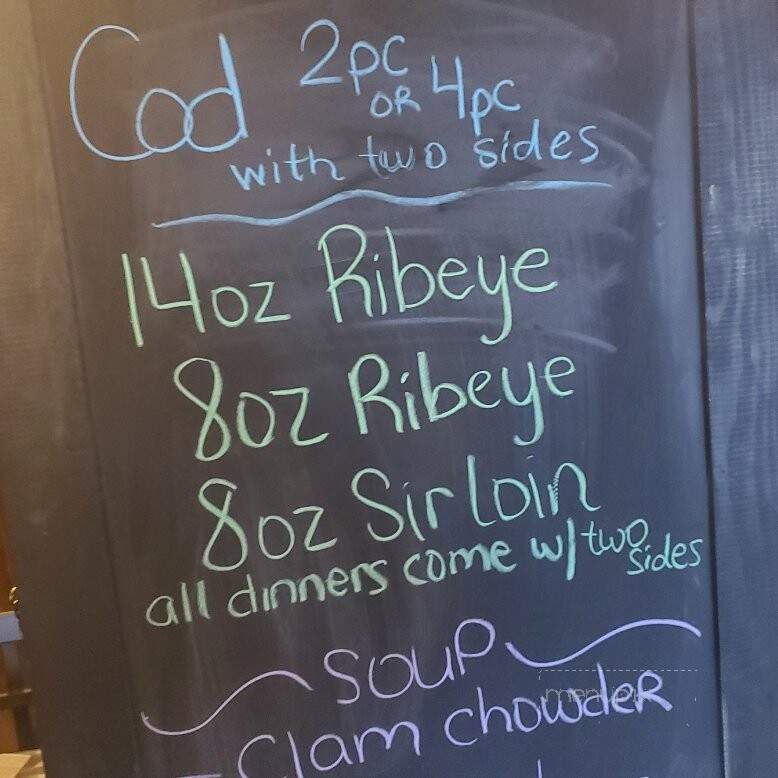 Cod 2pc OR 4pc
with two sides
14oz Ribeye
8oz Ribeye
8oz Sirloin
all dinners come w/ two sides
SOUP
Clam chowdeR